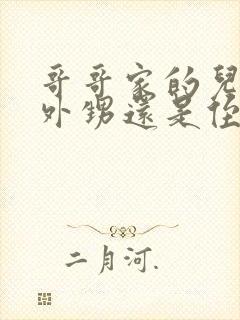 哥哥家的兒
外甥還是侄
二月河.